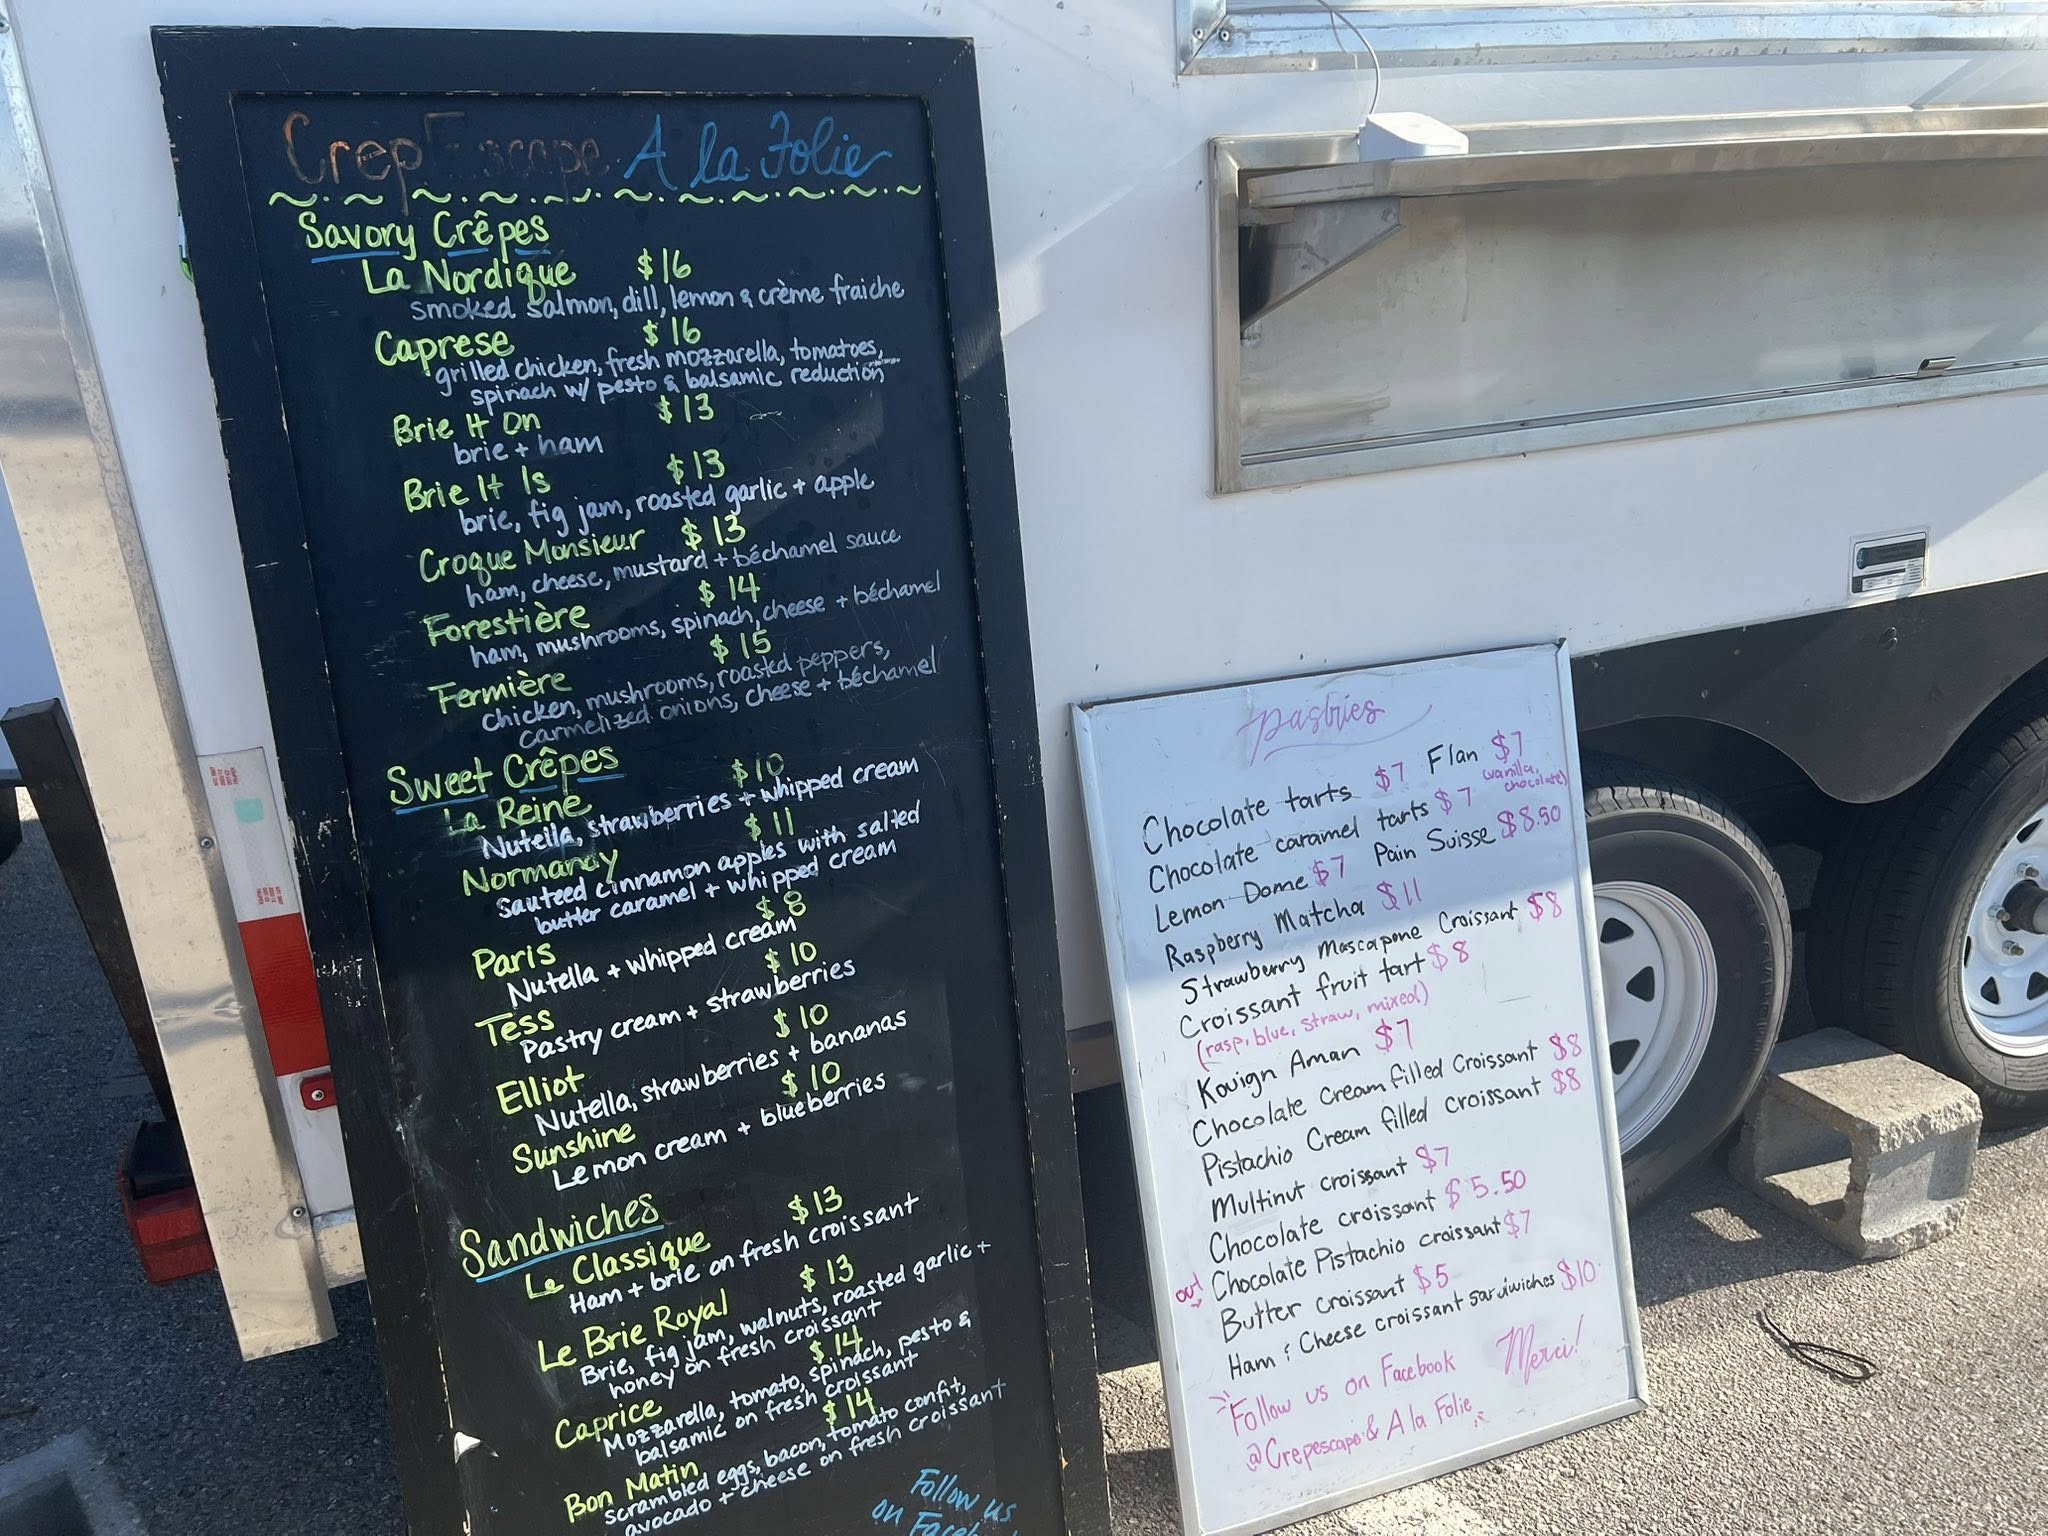 CrepEscape A la Folie
Savory Crêpes
La Nordique $16
smoked salmon, dill, lemon & crème fraiche
Caprese $16
grilled chicken, fresh mozzarella, tomatoes,
spinach w/ pesto & balsamic reduction
Brie It On $13
brie + ham
Brie It Is $13
brie, fig jam, roasted garlic + apple
Croque Monsieur $13
ham, cheese, mustard + béchamel sauce
Forestière $14
ham, mushrooms, spinach, cheese + béchamel
Fermière $15
chicken, mushrooms, roasted peppers,
carmelized onions, cheese + béchamel
Sweet Crêpes
La Reine $10
Nutella, strawberries + whipped cream
Normandy $11
sauteed cinnamon apples with salted
butter caramel + whipped cream
Paris $8
Nutella + whipped cream
Tess $10
Pastry cream + strawberries
Elliot $10
Nutella, strawberries + bananas
Sunshine $10
Lemon cream + blueberries
Sandwiches
Le Classique $13
Ham + brie on fresh croissant
Le Brie Royal $13
Brie, fig jam, walnuts, roasted garlic +
honey on fresh croissant
Caprice $14
Mozzarella, tomato, spinach, pesto &
balsamic on fresh croissant
Bon Matin $14
scrambled eggs, bacon, tomato confit,
avocado + cheese on fresh croissant
Follow us
on
pastries
Chocolate tarts $7 Flan $7
(vanilla, chocolate)
Chocolate caramel tarts $7
Lemon Dome $7 Pain Suisse $8.50
Raspberry Matcha $11
Strawberry Mascapone Croissant $8
Croissant fruit tart $8
(rasp, blue, straw, mixed)
Kouign Aman $7
Chocolate Cream filled Croissant $8
Pistachio Cream filled croissant $8
Multinut croissant $7
Chocolate croissant $5.50
Chocolate Pistachio croissant $7
out Butter croissant $5
Ham & Cheese croissant sandwiches $10
Merci!
Follow us on Facebook
@Crepescape & A la Folie